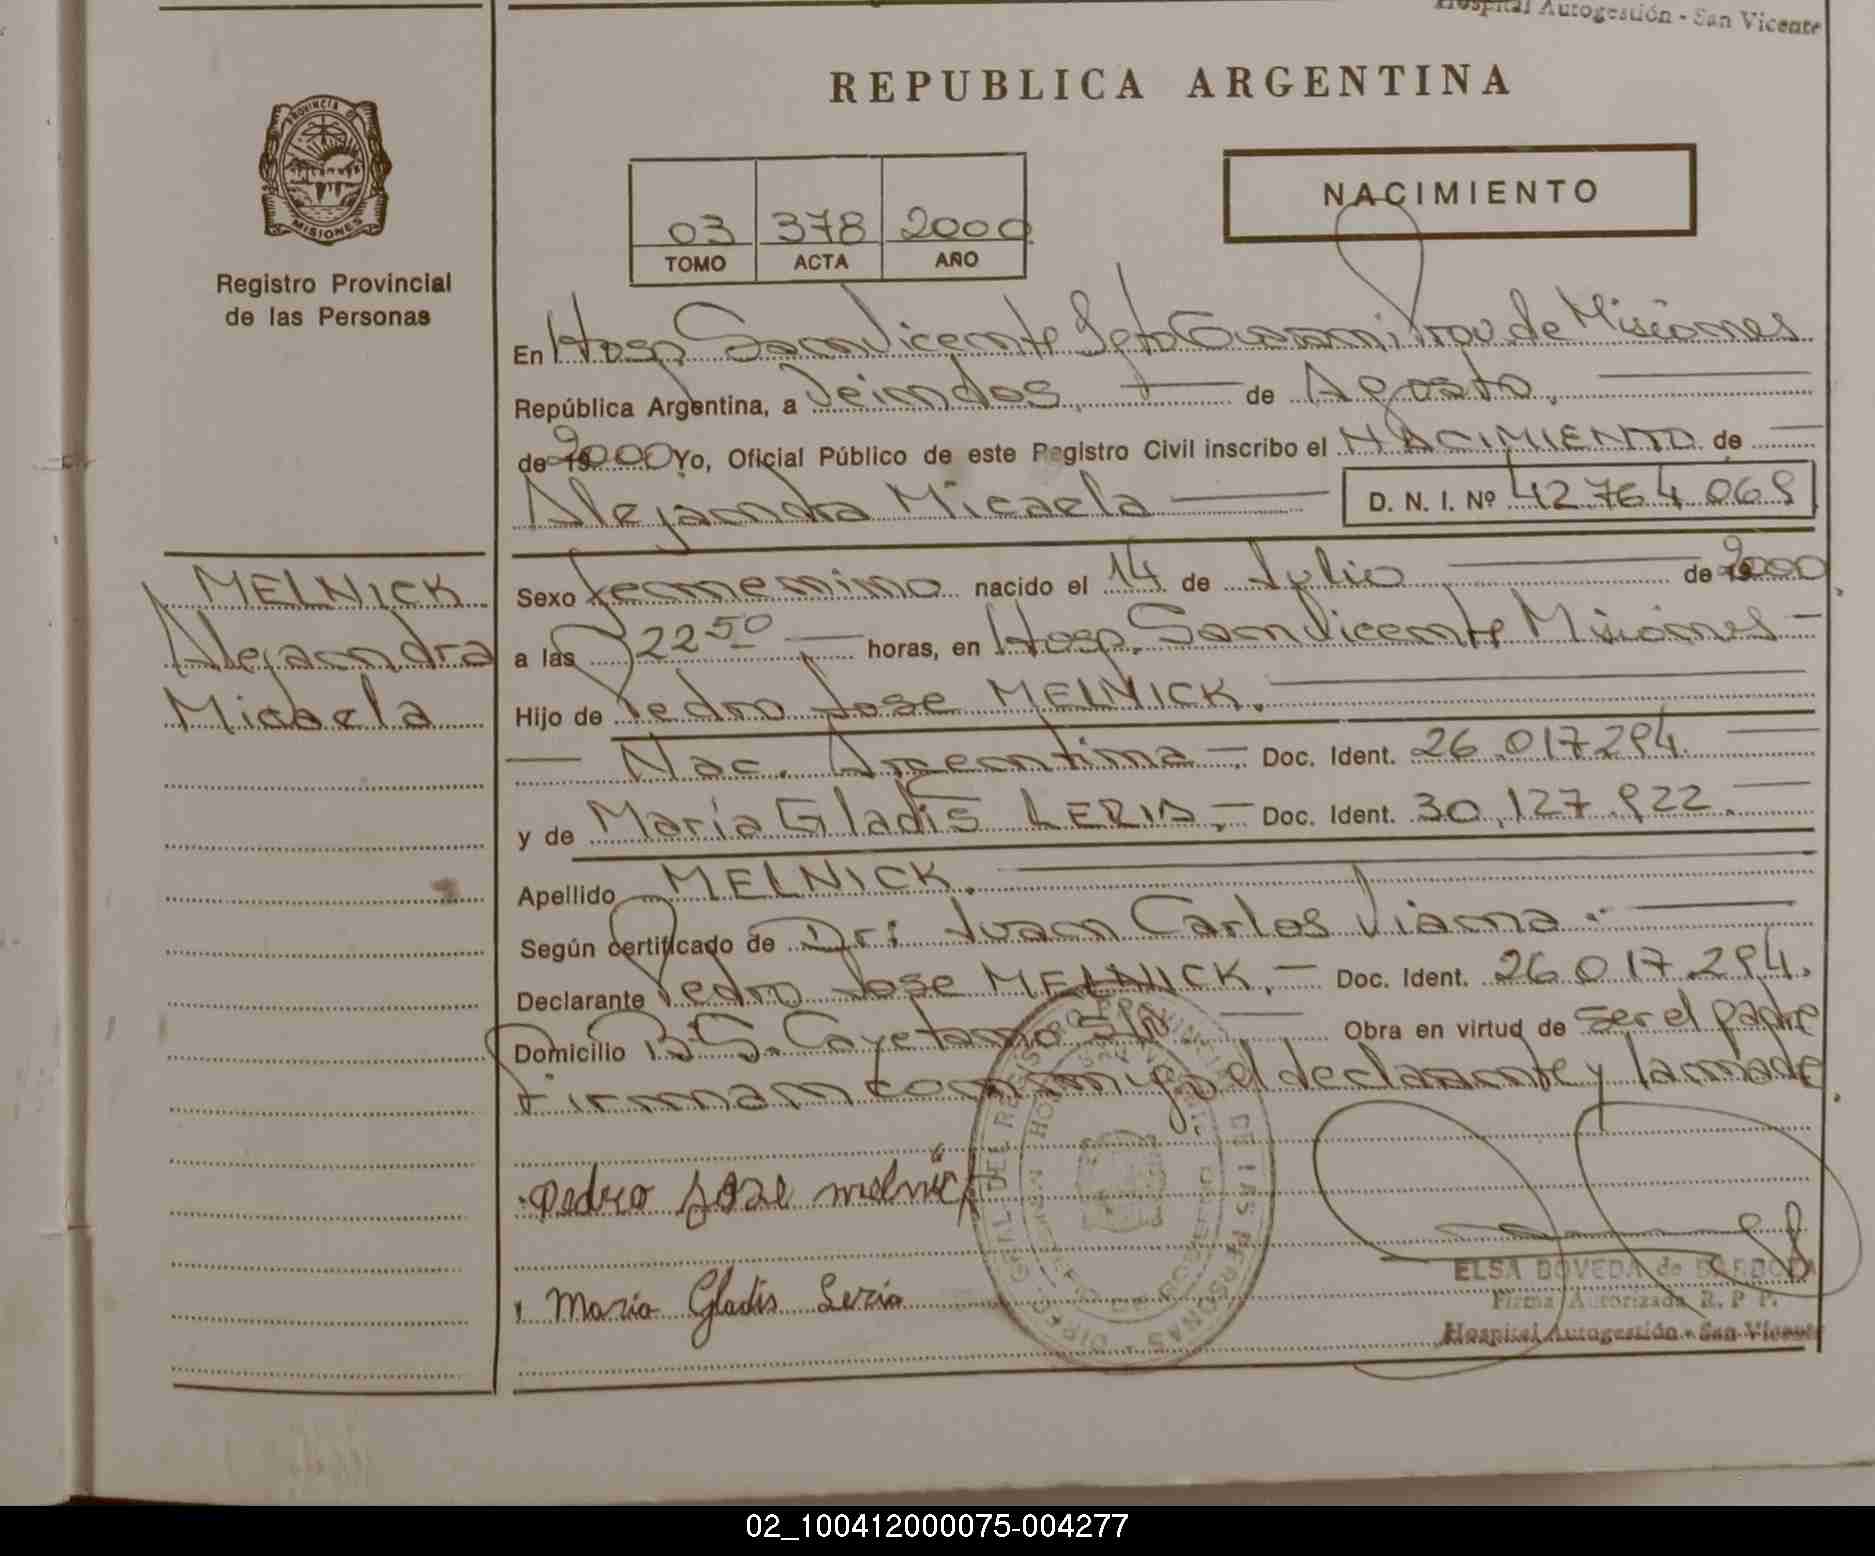 Hospital Autogestión - San Vicente
REPUBLICA ARGENTINA
PROVINCIA DE
MISIONES
Registro Provincial
de las Personas
03 378 2000
TOMO ACTA AÑO
NACIMIENTO
En Hosp. San Vicente Dpto Guarani Prov. de Misiones
República Argentina, a Veindos, de Agosto,
de 2000 Yo, Oficial Público de este Registro Civil inscribo el NACIMIENTO de
Alejandra Micaela D. N. I. Nº 42.764.069
MELNICK
Alejandra
Micaela
Sexo femenino nacido el 14 de Julio de 2000
a las 22 50 horas, en Hosp. San Vicente Misiones
Hijo de Pedro Jose MELNICK.
Nac. Argentina Doc. Ident. 26.017.294.
y de María Gladis LERIA, Doc. Ident. 30.127.922.
Apellido MELNICK.
Según certificado de Dr: Juan Carlos Viana.
Declarante Pedro Jose MELNICK, Doc. Ident. 26.017.294.
Domicilio Bº S. Cayetano S/N Obra en virtud de ser el padre
Firman conmigo el declarante y la madre.
Pedro Jose melnick
Maria Gladis Leria
ELSA BOVEDA de
Firma Autorizada R. P. P.
Hospital Autogestión - San Vicente
02_100412000075-004277